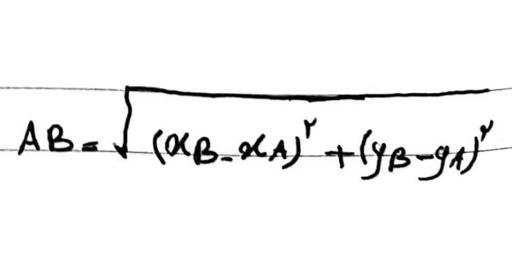 AB = √((x_B - x_A)^۲ + (y_B - y_A)^۲)